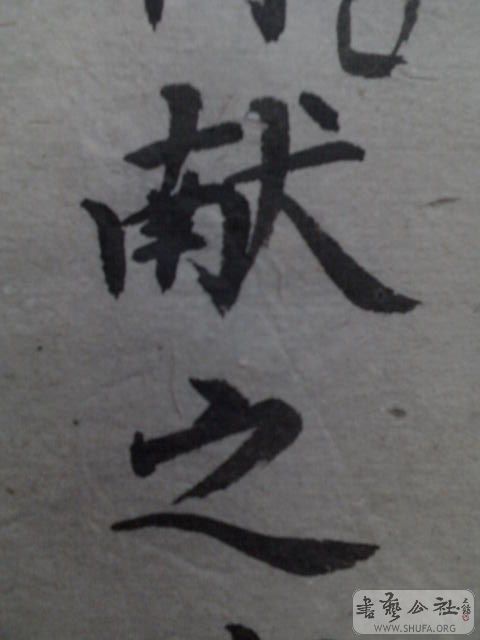 献之
書藝公社
WWW.SHUFA.ORG